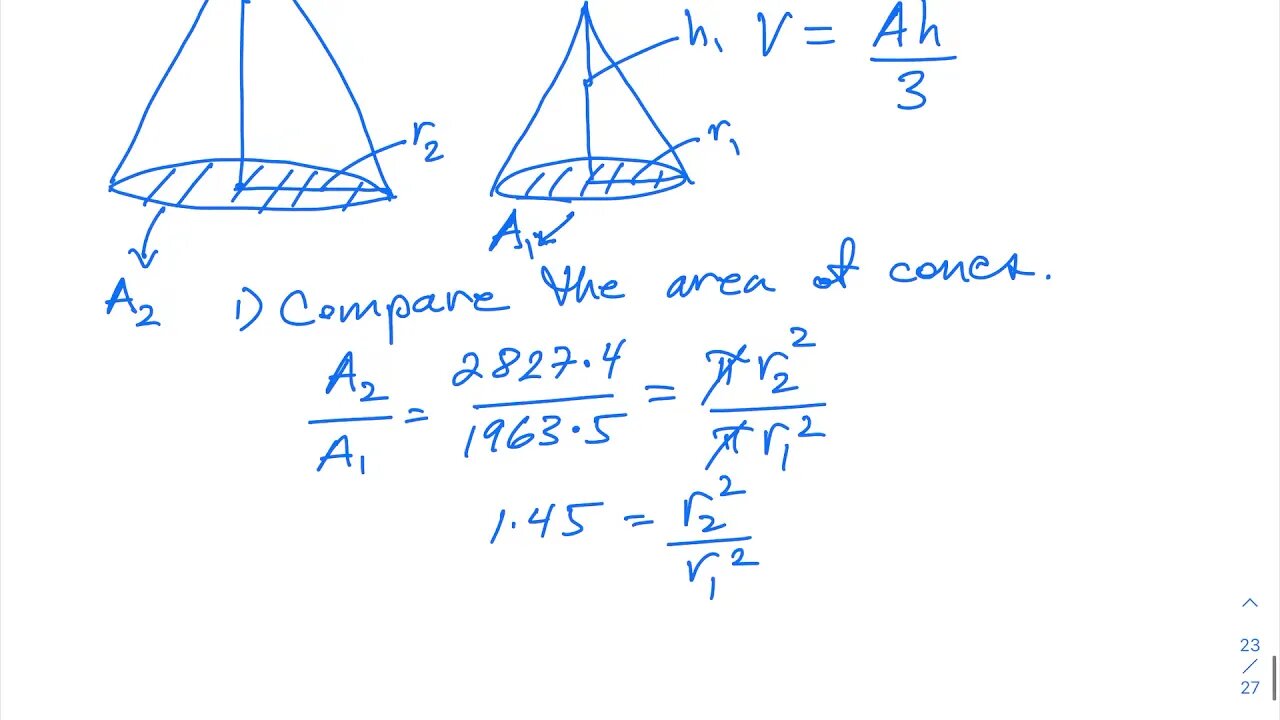 h₁ V = Ah/3
r₂ r₁
A₁
A₂ 1) Compare the area of cones.
A₂/A₁ = 2827.4/1963.5 = πr₂²/πr₁²
1.45 = r₂²/r₁²
23
/
27